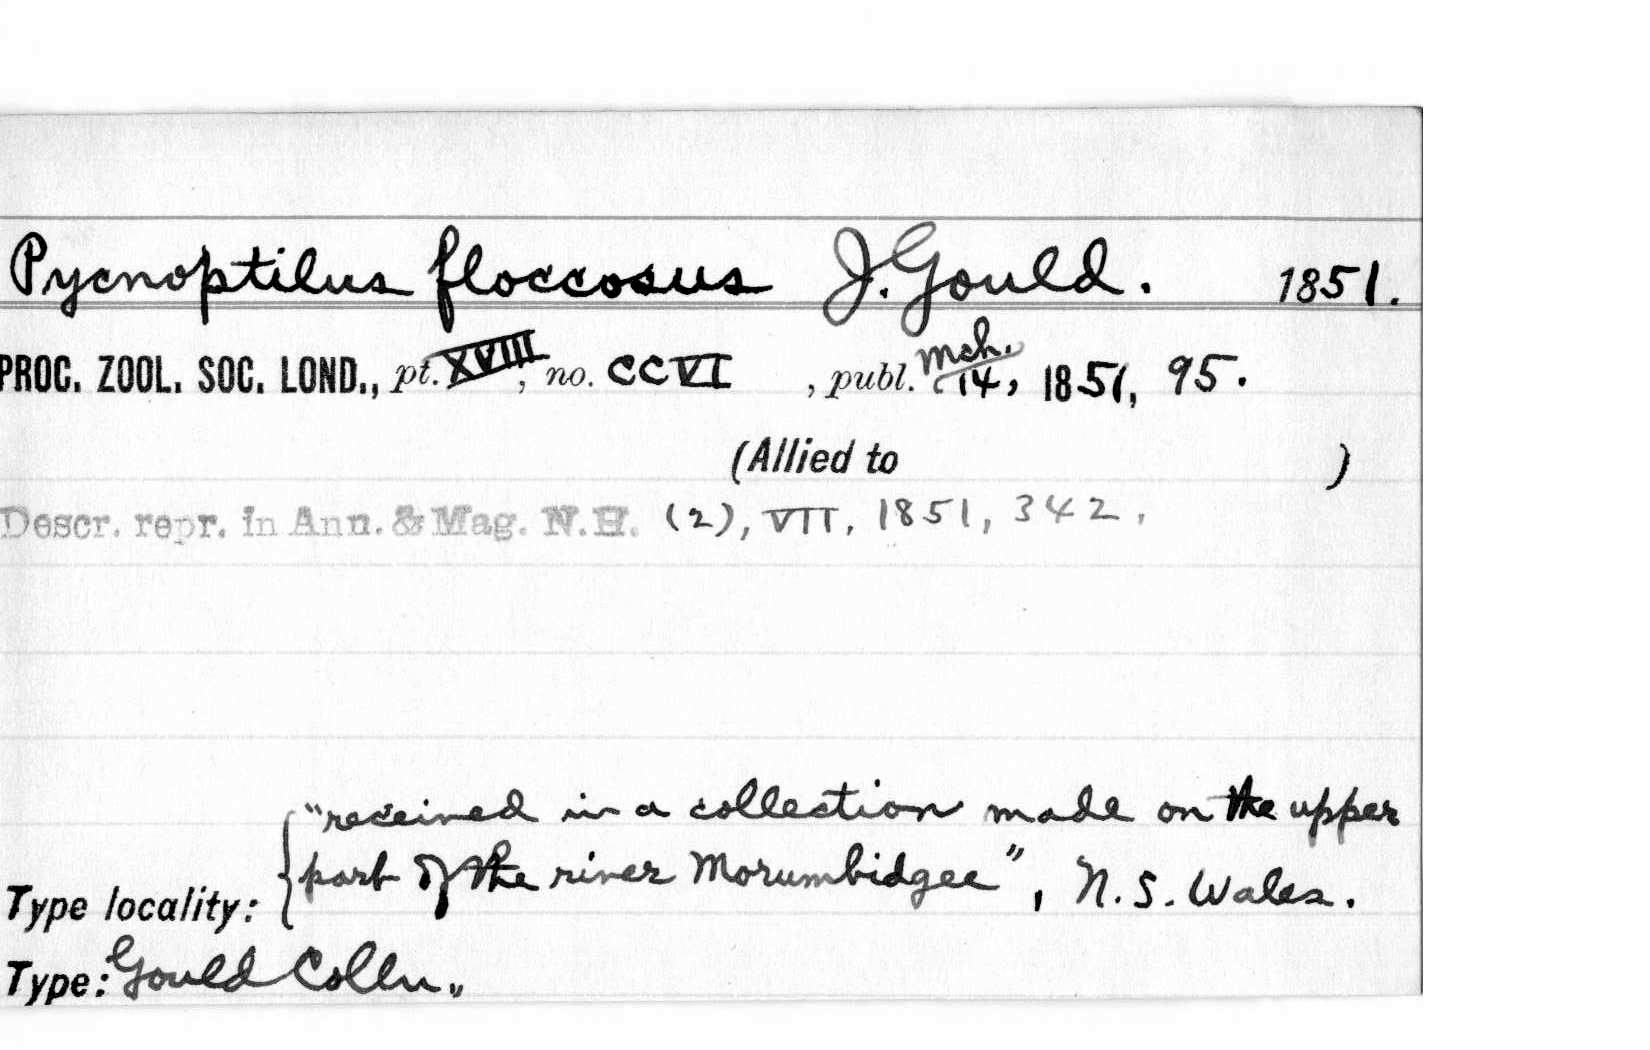 Pycnoptilus floccosus J. Gould. 1851.
PROC. ZOOL. SOC. LOND., pt. XVIII, no. CCVI , publ. Mch. 14, 1851, 95.
(Allied to )
Descr. repr. in Ann. & Mag. N.H. (2), VII, 1851, 342.
"received in a collection made on the upper
part of the river Morumbidgee", N. S. Wales.
Type locality:
Type: Gould Colln.